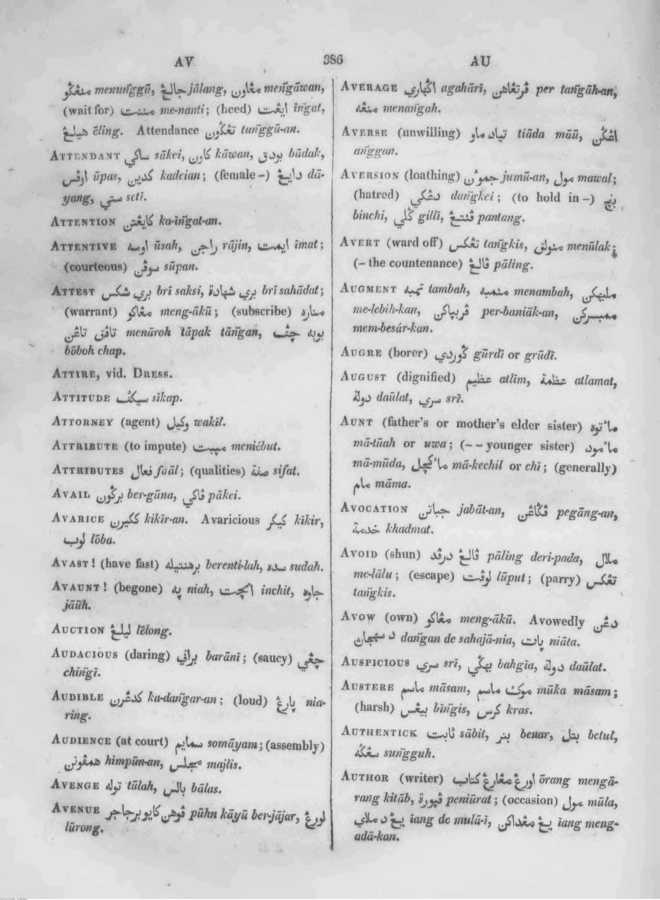 AV
386
AU
منڠگو menuñggū, جالڠ jālang, مڠاون meñgāwan,
(wait for) مننت me-nanti; (heed) ايڠت iñgat,
هيلڠ ēling. Attendance تڠگون tuñggū-an.
ATTENDANT ساكي sākei, كاون kāwan, بودق būdak,
اوفس ūpas, كدين kadeian; (female–) دايڠ dā-
yang, ستي setī.
ATTENTION كايڠتن ka-iñgat-an.
ATTENTIVE اوسه ūsah, راجن rājin, ايمت imat;
(courteous) سوفن sūpan.
ATTEST بري شكس brī saksi, بري شهادة brī sahādat;
(warrant) مڠاكو meng-ākū; (subscribe) مناره
menūroh تافق تاڠن tāpak tāñgan, بوبه چف
būboh chap.
ATTIRE, vid. DRESS.
ATTITUDE سيكف sīkap.
ATTORNEY (agent) وكيل wakīl.
ATTRIBUTE (to impute) مپبت meniēbut.
ATTRIBUTES فعال fiāl; (qualities) صفة sifat.
AVAIL برگون ber-gūna, فاكي pākei.
AVARICE ككيرن kikīr-an. Avaricious كيكر kikir,
لوب lōba.
AVAST! (have fast) برهنتيله berenti-lah, سده sudah.
AVAUNT! (begone) په niah, انچت inchit, جاوه
jāūh.
AUCTION ليلڠ lēlong.
AUDACIOUS (daring) براني barāni; (saucy) چڠي
chiñgī.
AUDIBLE كدڠرن ka-dañgar-an; (loud) پارڠ nia-
ring.
AUDIENCE (at court) سمايم somāyam; (assembly)
همفونن himpūn-an, مجلس majlis.
AVENGE توله tūlah, بالس bālas.
AVENUE فوهن كايو برجاجر pūhn kāyū ber-jājar, لورڠ
lūrong.
AVERAGE اگهاري agahārī, فرتڠاهن per tañgāh-an,
منڠه menañgah.
AVERSE (unwilling) تياد ماو tiāda māū, اڠگن
añggan.
AVERSION (loathing) جموان jumū-an, مول mawal;
(hatred) دڠكي dañgkei; (to hold in–) بنچ
binchi, گلي gilli, فنتڠ pantang.
AVERT (ward off) تڠكس tañgkis, منولق menūlak;
(– the countenance) فالڠ pāling.
AUGMENT تمبه tambah, منمبه menambah, ملبهكن
me-lebih-kan, فربپاكن per-baniāk-an, ممبسركن
mem-besár-kan.
AUGRE (borer) گوردي gūrdi or grūdi.
AUGUST (dignified) عظيم atlim, عظمة atlamat,
دولة daūlat, سري srī.
AUNT (father's or mother's elder sister) ماتوه
mā-tūah or uwa; (– – younger sister) مامود
mā-mūda, ماكچل mā-kechil or chi; (generally)
مام māma.
AVOCATION جباتن jabāt-an, فگاڠن pegāng-an,
خدمة khadmat.
AVOID (shun) فالڠ درفد pāling deri-pada, ملال
me-lālu; (escape) لوفت lūput; (parry) تڠكس
tañgkis.
AVOW (own) مڠاكو meng-ākū. Avowedly دڠن
د سهجان dañgan de sahajā-nia, پات niāta.
AUSPICIOUS سري srī, بهڬي bahgia, دولة daūlat.
AUSTERE ماسم māsam, موك ماسم mūka māsam;
(harsh) بيڠس bīñgis, كرس kras.
AUTHENTICK ثابت sābit, بنر benar, بتل betul,
سڠگه suñgguh.
AUTHOR (writer) اورڠ مڠارڠ كتاب ōrang mengā-
rang kitāb, فپورة peniūrat; (occasion) مول mūla,
يڠ د ملاي iang de mulā-i, يڠ مڠداكن iang meng-
adā-kan.